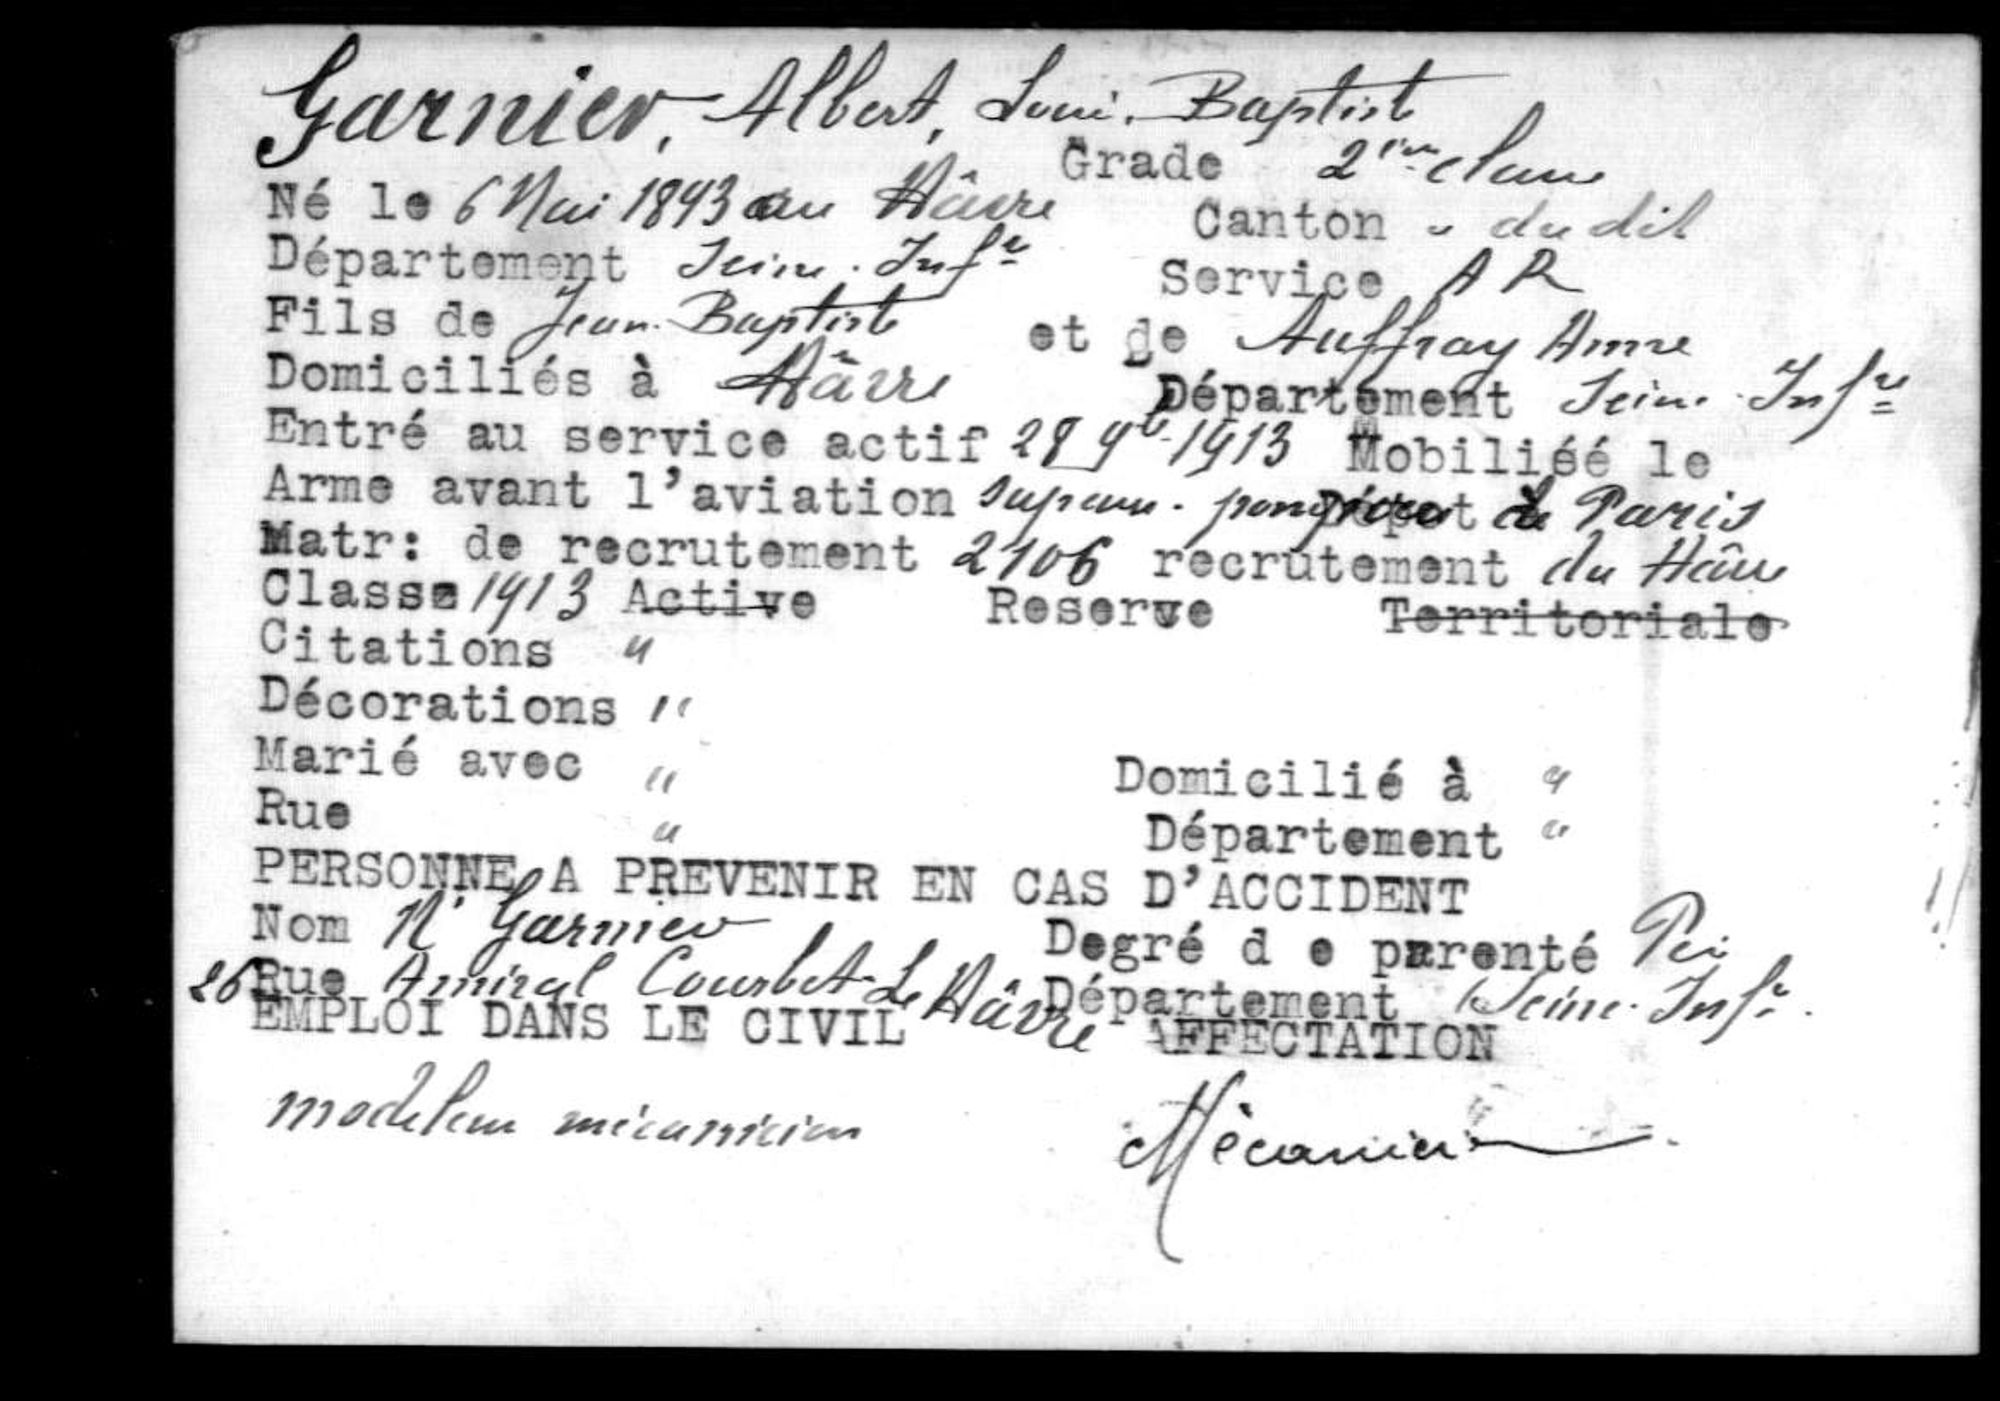 Garnier, Albert, Louis. Baptiste
Grade 2ème classe
Né le 6 Mai 1893 au Hâvre
Canton " dudit
Département Seine. Infre
Service A R
Fils de Jean. Baptiste et de Auffray Anne
Domiciliés à Hâvre Département Seine. Infre
Entré au service actif 28 9bre 1913 Mobilisé le
Arme avant l'aviation sapeur. pompier de Paris
Matr: de recrutement 2106 recrutement du Hâvre
Classe 1913 Active Reserve Territoriale
Citations "
Décorations "
Marié avec " Domicilié à "
Rue " Département "
PERSONNE A PREVENIR EN CAS D'ACCIDENT
Nom Mr Garnier Degré d e parenté Père
26 Rue Amiral Courbet Le Hâvre Département Seine. Infre.
EMPLOI DANS LE CIVIL AFFECTATION
modeleur mécanicien Mécanicien